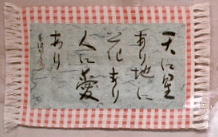 天に星
あり地に
花あり
人に愛
あり